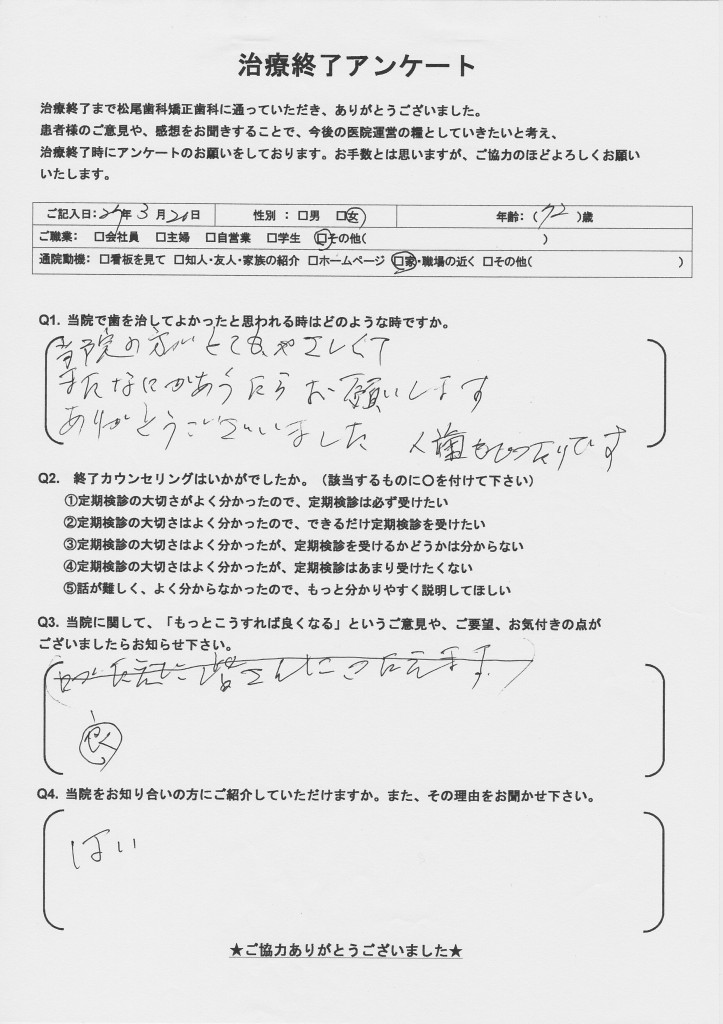 治療終了アンケート
治療終了まで松尾歯科矯正歯科に通っていただき、ありがとうございました。
患者様のご意見や、感想をお聞きすることで、今後の医院運営の糧としていきたいと考え、
治療終了時にアンケートのお願いをしております。お手数とは思いますが、ご協力のほどよろしくお願い
いたします。
ご記入日：29年 3 月 20日 性別 ： □男 □女 年齢：（ 72 ）歳
ご職業： □会社員 □主婦 □自営業 □学生 □その他（ ）
通院動機： □看板を見て □知人・友人・家族の紹介 □ホームページ □家・職場の近く □その他（ ）
Q1. 当院で歯を治してよかったと思われる時はどのような時ですか。
当院の方がとてもやさしくて
またなにかあったらお願いします
ありがとうございました 入歯もぴったりです
Q2. 終了カウンセリングはいかがでしたか。（該当するものに〇を付けて下さい）
①定期検診の大切さがよく分かったので、定期検診は必ず受けたい
②定期検診の大切さはよく分かったので、できるだけ定期検診を受けたい
③定期検診の大切さはよく分かったが、定期検診を受けるかどうかは分からない
④定期検診の大切さはよく分かったが、定期検診はあまり受けたくない
⑤話が難しく、よく分からなかったので、もっと分かりやすく説明してほしい
Q3. 当院に関して、「もっとこうすれば良くなる」というご意見や、ご要望、お気付きの点が
ございましたらお知らせ下さい。
皆さんにつたえます
良
Q4. 当院をお知り合いの方にご紹介していただけますか。また、その理由をお聞かせ下さい。
はい
★ご協力ありがとうございました★